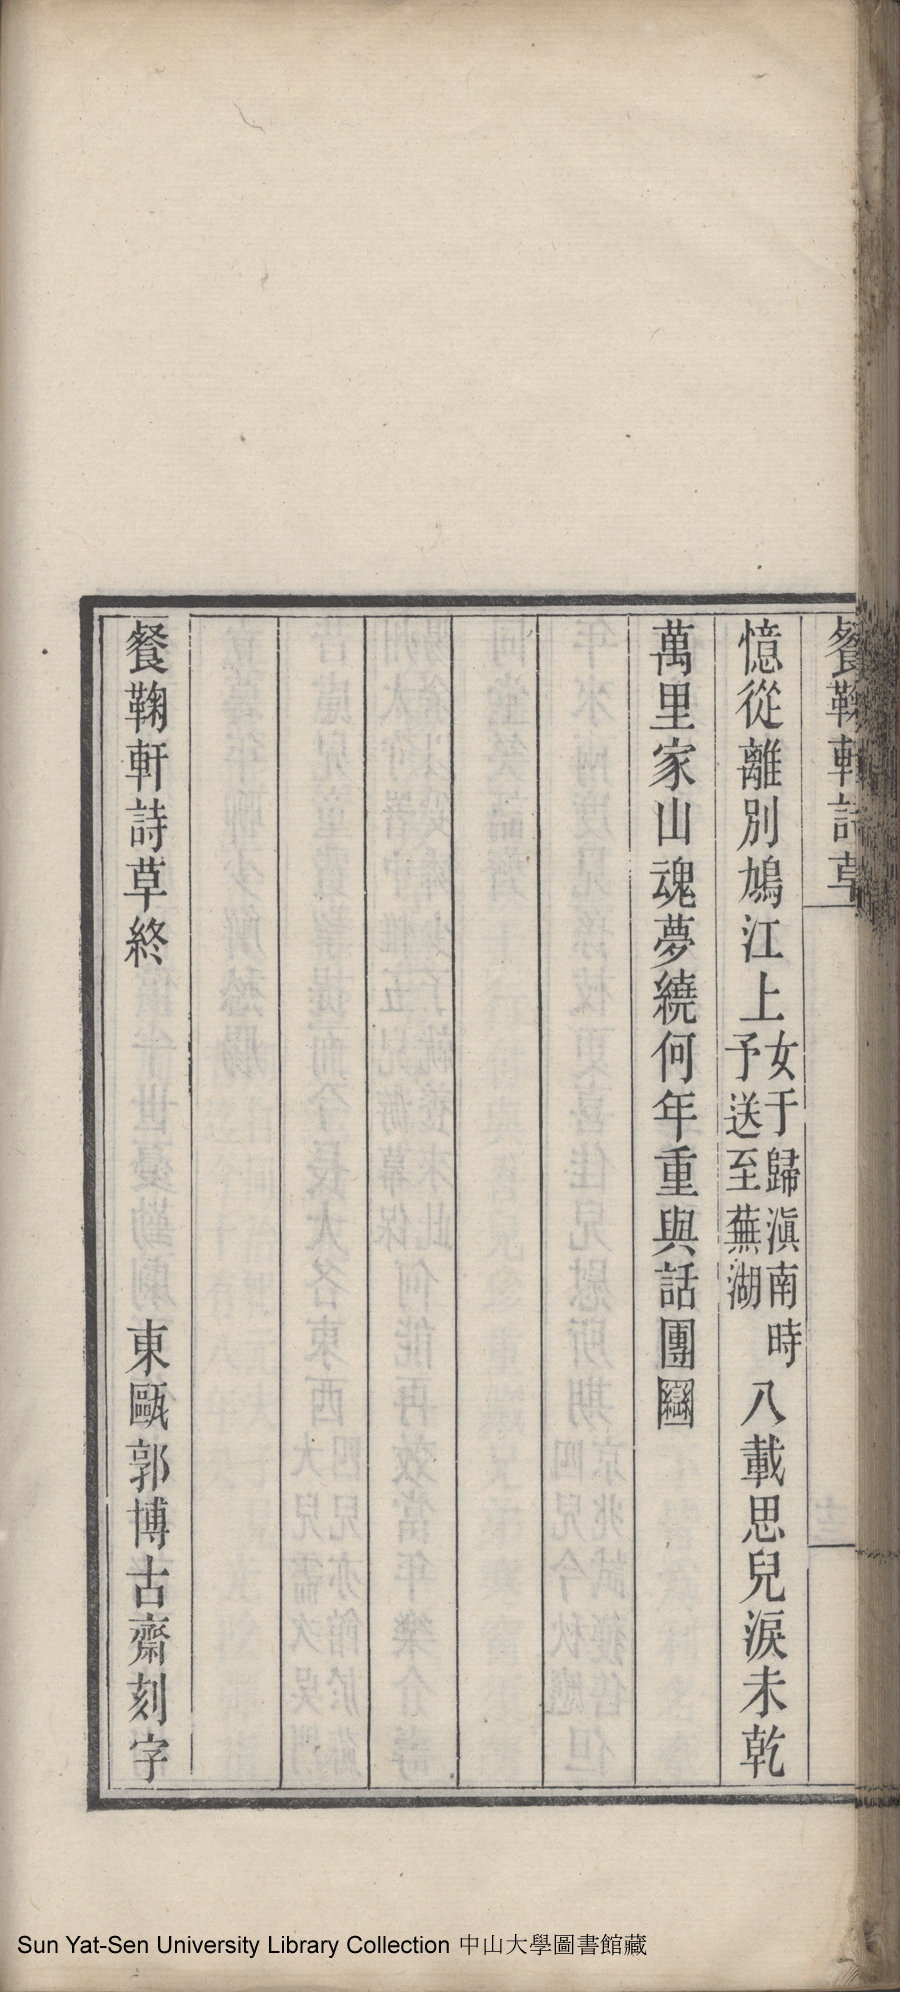 餐鞠軒詩草
憶從離別鳩江上女于歸滇南時予送至蕪湖八載思兒淚未乾
萬里家山魂夢繞何年重與話團圞
餐鞠軒詩草終 東甌郭博古齋刻字
Sun Yat-Sen University Library Collection 中山大學圖書館藏